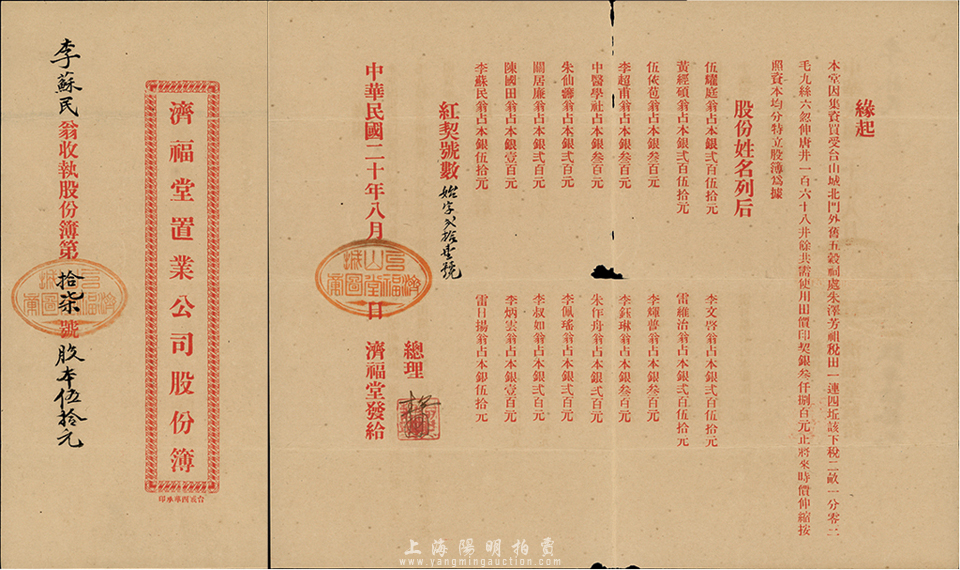 緣起
本堂因集資買受台山城北門外舊五穀祠處朱澤芳祖稅田一連四坵該下稅二畝一分零二
毛九絲六忽伸唐井一百六十八井餘共需使用田價印契銀叁仟捌百元正將來時價伸縮按
照資本均分特立股簿為據
股份姓名列后
伍耀庭翁占本銀弍百伍拾元
李文啓翁占本銀弍百伍拾元
黃經碩翁占本銀弍百伍拾元
雷維治翁占本銀弍百伍拾元
伍俠苞翁占本銀叁百元
李輝蓉翁占本銀叁百元
李超甫翁占本銀叁百元
李鈺琳翁占本銀叁百元
中醫學社占本銀叁百元
朱作舟翁占本銀弍百元
朱仙儔翁占本銀弍百元
李佩瑤翁占本銀弍百元
關居廉翁占本銀弍百元
李叔如翁占本銀弍百元
陳國田翁占本銀壹百元
李炳雲翁占本銀壹百元
李蘇民翁占本銀伍拾元
雷日揚翁占本銀伍拾元
紅契號數 始字弍拾壹號
總理
中華民國二十年八月 日 濟福堂發給
台山城
濟福堂
圖章
濟福堂置業公司股份簿
台城西華承印
李蘇民翁收執股份簿第拾柒號股本伍拾元
台山城
濟福堂
圖章
上海陽明拍賣
www.yangmingauction.com